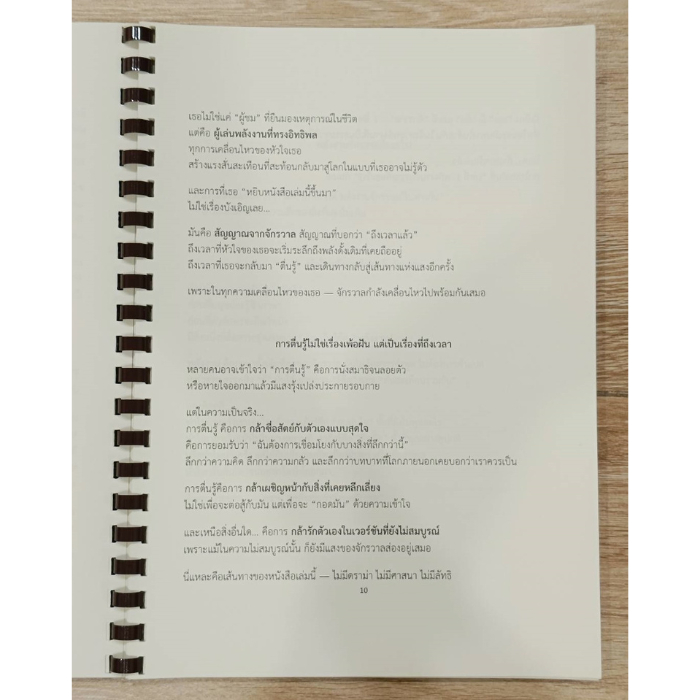 เธอไม่ใช่แค่ “ผู้ชม” ที่ยืนมองเหตุการณ์ในชีวิต
แต่คือ ผู้เล่นพลังงานที่ทรงอิทธิพล
ทุกการเคลื่อนไหวของหัวใจเธอ
สร้างแรงสั่นสะเทือนที่สะท้อนกลับมาสู่โลกในแบบที่เธออาจไม่รู้ตัว
และการที่เธอ “หยิบหนังสือเล่มนี้ขึ้นมา”
ไม่ใช่เรื่องบังเอิญเลย...
มันคือ สัญญาณจากจักรวาล สัญญาณที่บอกว่า “ถึงเวลาแล้ว”
ถึงเวลาที่หัวใจของเธอจะเริ่มระลึกถึงพลังดั้งเดิมที่เคยถืออยู่
ถึงเวลาที่เธอจะกลับมา “ตื่นรู้” และเดินทางกลับสู่เส้นทางแห่งแสงอีกครั้ง
เพราะในทุกความเคลื่อนไหวของเธอ — จักรวาลกำลังเคลื่อนไหวไปพร้อมกันเสมอ
การตื่นรู้ไม่ใช่เรื่องเพ้อฝัน แต่เป็นเรื่องที่ถึงเวลา
หลายคนอาจเข้าใจว่า “การตื่นรู้” คือการนั่งสมาธิจนลอยตัว
หรือหายใจออกมาแล้วมีแสงรุ้งเปล่งประกายรอบกาย
แต่ในความเป็นจริง...
การตื่นรู้ คือการ กล้าซื่อสัตย์กับตัวเองแบบสุดใจ
คือการยอมรับว่า “ฉันต้องการเชื่อมโยงกับบางสิ่งที่ลึกกว่านี้”
ลึกกว่าความคิด ลึกกว่าความกลัว และลึกกว่าบทบาทที่โลกภายนอกเคยบอกว่าเราควรเป็น
การตื่นรู้คือการ กล้าเผชิญหน้ากับสิ่งที่เคยหลีกเลี่ยง
ไม่ใช่เพื่อจะต่อสู้กับมัน แต่เพื่อจะ “กอดมัน” ด้วยความเข้าใจ
และเหนือสิ่งอื่นใด... คือการ กล้ารักตัวเองในเวอร์ชันที่ยังไม่สมบูรณ์
เพราะแม้ในความไม่สมบูรณ์นั้น ก็ยังมีแสงของจักรวาลส่องอยู่เสมอ
นี่แหละคือเส้นทางของหนังสือเล่มนี้ — ไม่มีดราม่า ไม่มีศาสนา ไม่มีลัทธิ
10